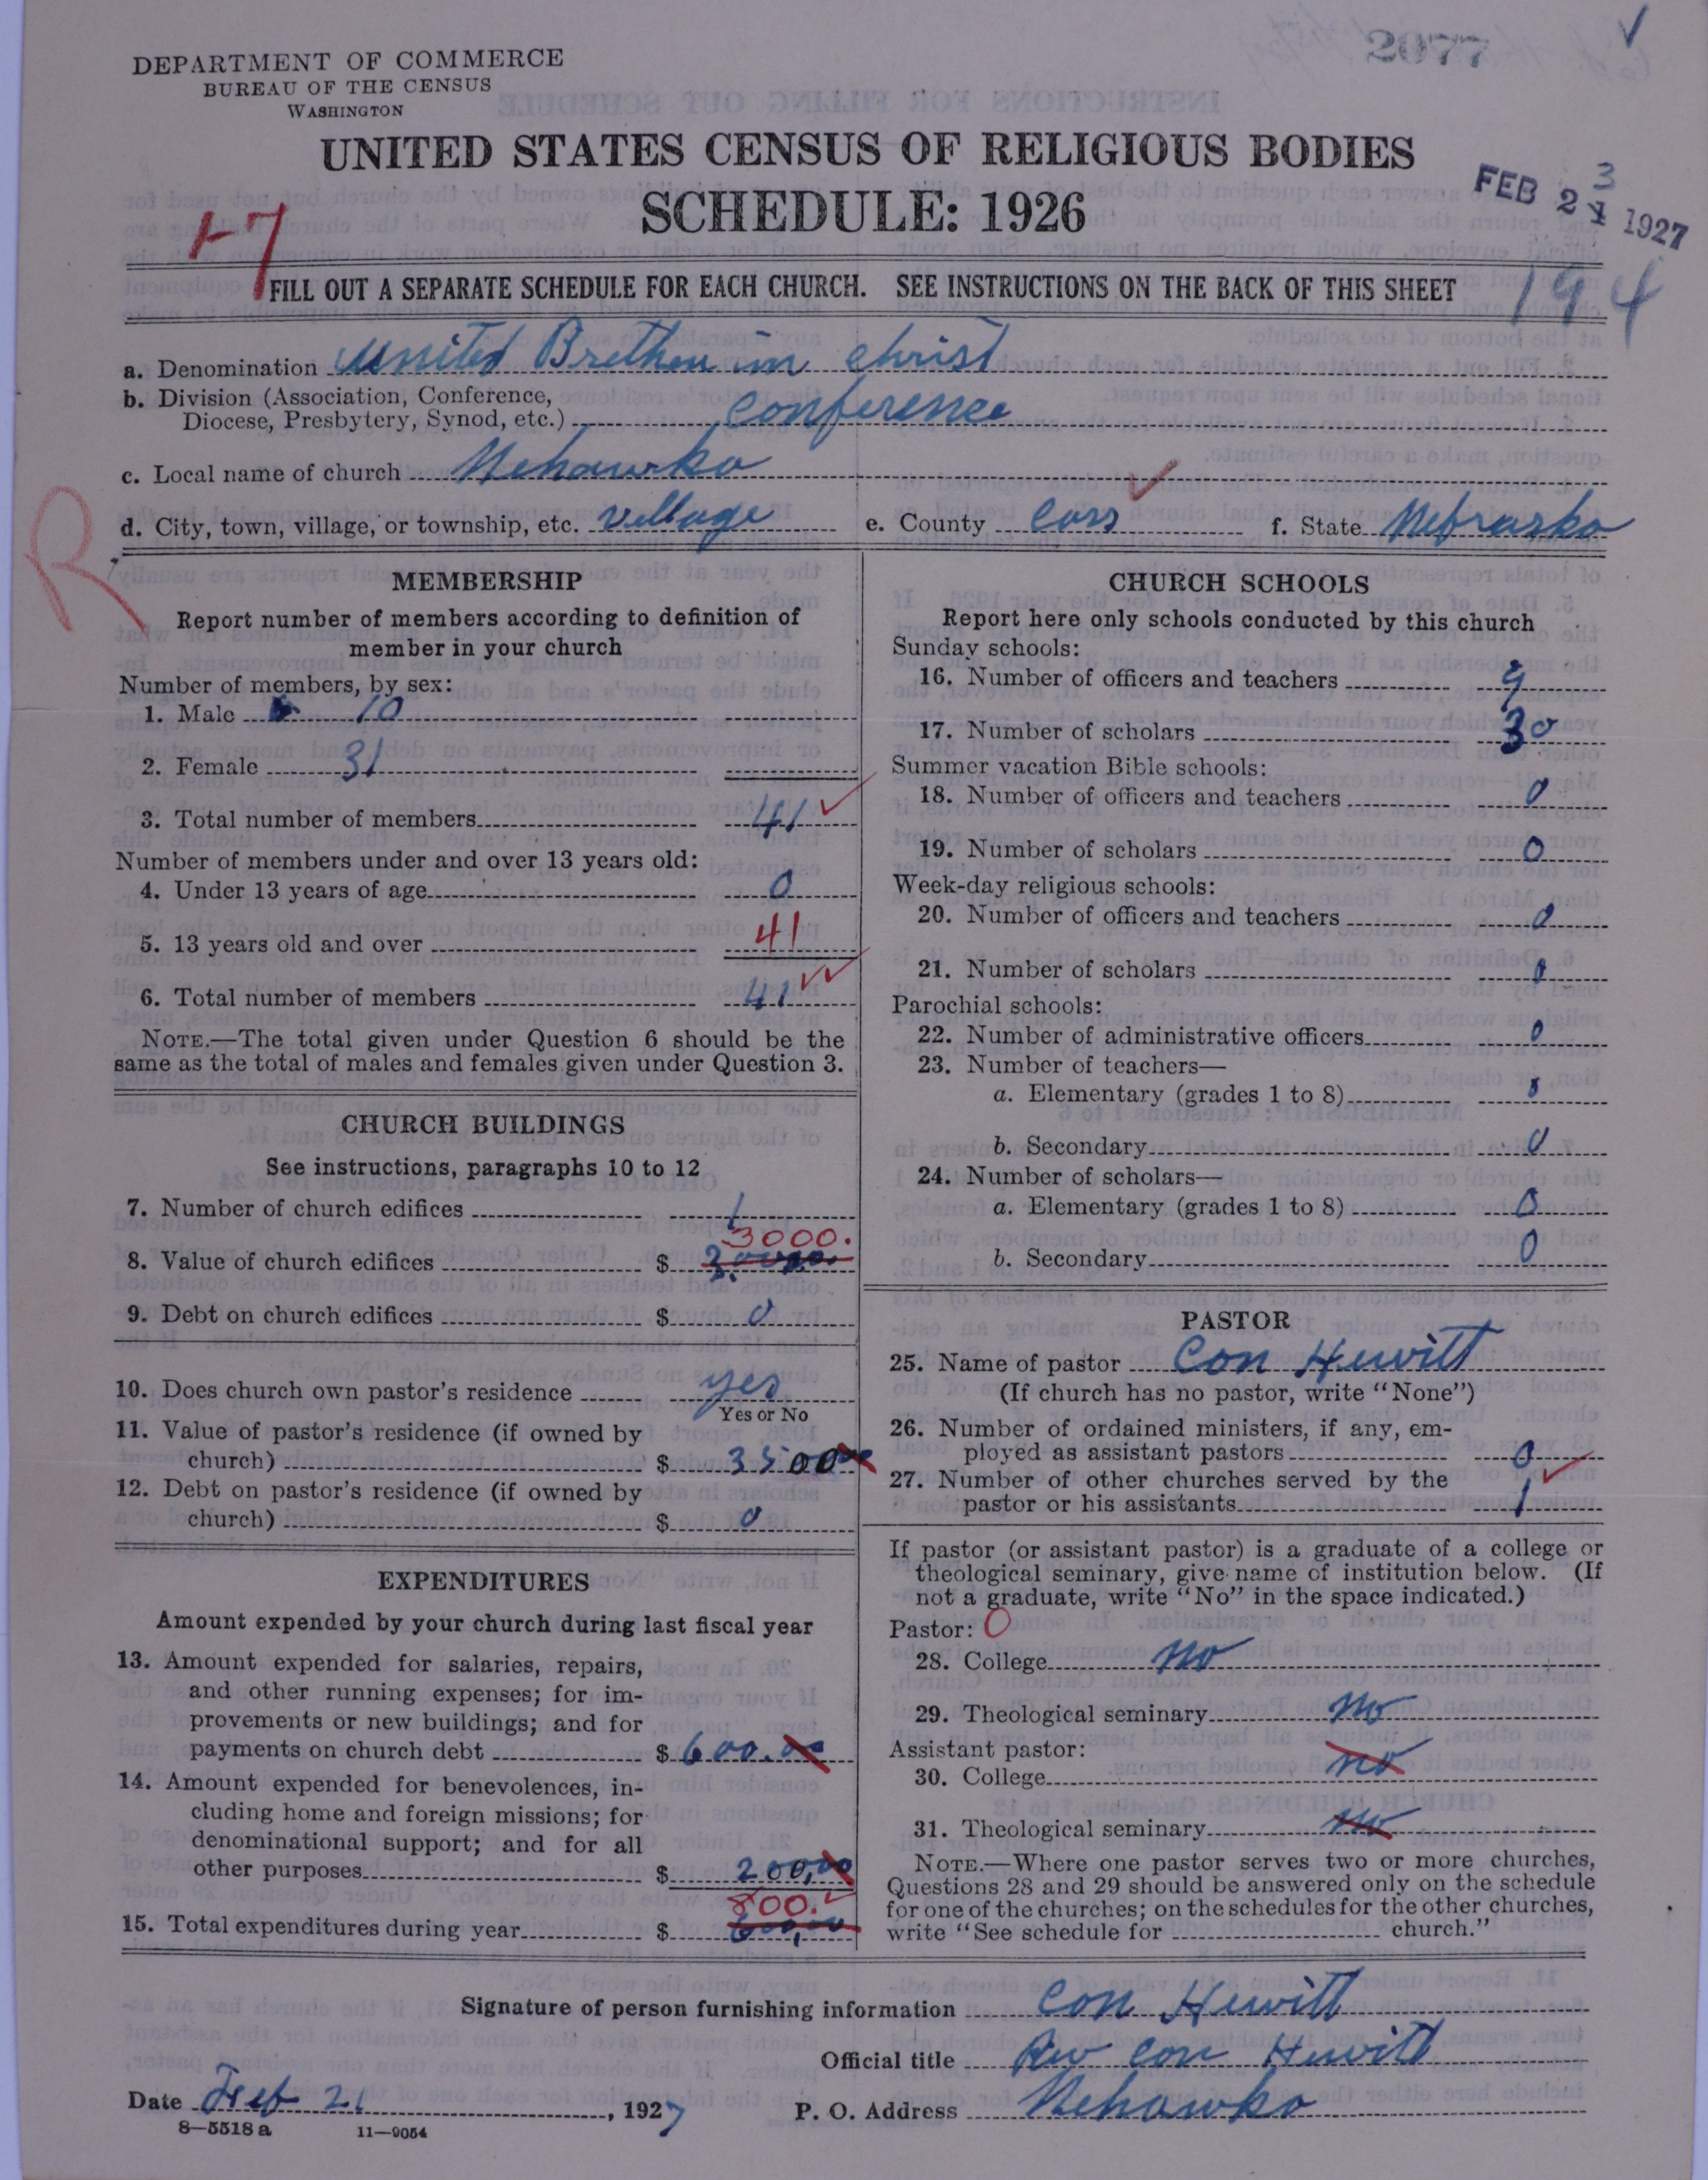 2077
DEPARTMENT OF COMMERCE
BUREAU OF THE CENSUS
WASHINGTON
UNITED STATES CENSUS OF RELIGIOUS BODIES
SCHEDULE: 1926
FEB 23 1927
1-7
194
FILL OUT A SEPARATE SCHEDULE FOR EACH CHURCH. SEE INSTRUCTIONS ON THE BACK OF THIS SHEET
a. Denomination United Brethen in Christ
b. Division (Association, Conference,
Diocese, Presbytery, Synod, etc.) Conference
c. Local name of church Nehawka
d. City, town, village, or township, etc. village e. County Cass f. State Nebraska
R
MEMBERSHIP
Report number of members according to definition of
member in your church
Number of members, by sex:
1. Male 10
2. Female 31
3. Total number of members 41
Number of members under and over 13 years old:
4. Under 13 years of age 0
5. 13 years old and over 41
6. Total number of members 41
NOTE.—The total given under Question 6 should be the
same as the total of males and females given under Question 3.
CHURCH BUILDINGS
See instructions, paragraphs 10 to 12
7. Number of church edifices 1
3000.
8. Value of church edifices $
9. Debt on church edifices $ 0
10. Does church own pastor's residence yes
Yes or No
11. Value of pastor's residence (if owned by
church) $ 3500
12. Debt on pastor's residence (if owned by
church) $ 0
EXPENDITURES
Amount expended by your church during last fiscal year
13. Amount expended for salaries, repairs,
and other running expenses; for im-
provements or new buildings; and for
payments on church debt $ 600.00
14. Amount expended for benevolences, in-
cluding home and foreign missions; for
denominational support; and for all
other purposes $ 200.00
800.
15. Total expenditures during year $ 600,00
CHURCH SCHOOLS
Report here only schools conducted by this church
Sunday schools:
16. Number of officers and teachers 9
17. Number of scholars 30
Summer vacation Bible schools:
18. Number of officers and teachers 0
19. Number of scholars 0
Week-day religious schools:
20. Number of officers and teachers 0
21. Number of scholars 0
Parochial schools:
22. Number of administrative officers 0
23. Number of teachers—
a. Elementary (grades 1 to 8) 0
b. Secondary 0
24. Number of scholars—
a. Elementary (grades 1 to 8) 0
b. Secondary 0
PASTOR
25. Name of pastor Con Hewitt
(If church has no pastor, write "None")
26. Number of ordained ministers, if any, em-
ployed as assistant pastors 0
27. Number of other churches served by the
pastor or his assistants 1
If pastor (or assistant pastor) is a graduate of a college or
theological seminary, give name of institution below. (If
not a graduate, write "No" in the space indicated.)
Pastor: O
28. College no
29. Theological seminary no
Assistant pastor:
30. College no
31. Theological seminary no
NOTE.—Where one pastor serves two or more churches,
Questions 28 and 29 should be answered only on the schedule
for one of the churches; on the schedules for the other churches,
write "See schedule for church."
Signature of person furnishing information Con Hewitt
Official title Rev Con Hewitt
Date Feb 21, 1927 P. O. Address Nehawka
8—5518 a 11—9054